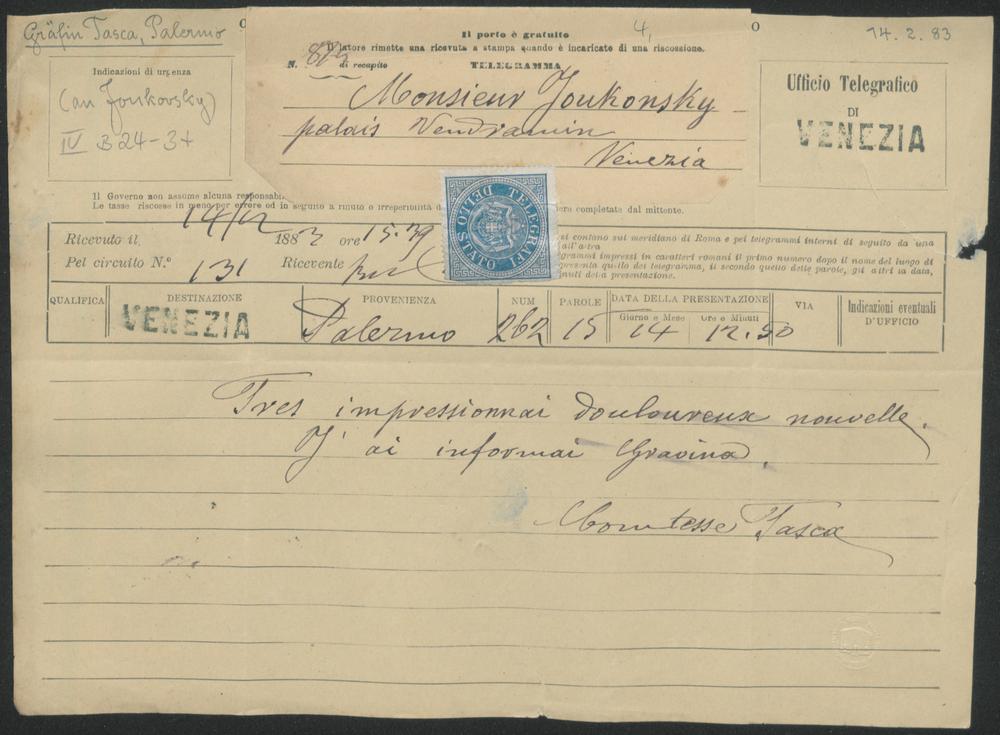 Gräfin Tasca, Palermo
4,
14. 2. 83
Il porto è gratuito
Il latore rimette una ricevuta a stampa quando è incaricate di una riscossione.
N. di recapito TELEGRAMMA
Indicazioni di urgenza
(an Joukovsky)
IV B 24-3+
Monsieur Joukonsky
palais Vendramin
Venezia
Ufficio Telegrafico
DI
VENEZIA
Il Governo non assume alcuna responsabi
Le tasse riscosse in meno per errore od in seguito a rifiuto o irreperibilità d ere completate dal mittente.
TELEGRAFI DELLO STATO
Ricevuto il 14/2 1883 ore 15.39
Pel circuito N.º 131 Ricevente
si contano sul meridiano di Roma e pei telegrammi interni di seguito da una
all'altra
grammi impressi in caratteri romani il primo numero dopo il nome del luogo di
presenta quello del telegramma, il secondo quello delle parole, gli altri la data,
nuti della presentazione.
QUALIFICA DESTINAZIONE PROVENIENZA NUM PAROLE DATA DELLA PRESENTAZIONE VIA Indicazioni eventuali
D'UFFICIO
Giorno e Mese Ore e Minuti
VENEZIA Palermo 262 15 14 12.50
Tres impressionnai douloureux nouvelle.
J'ai informai Gravina.
Comtesse Tasca